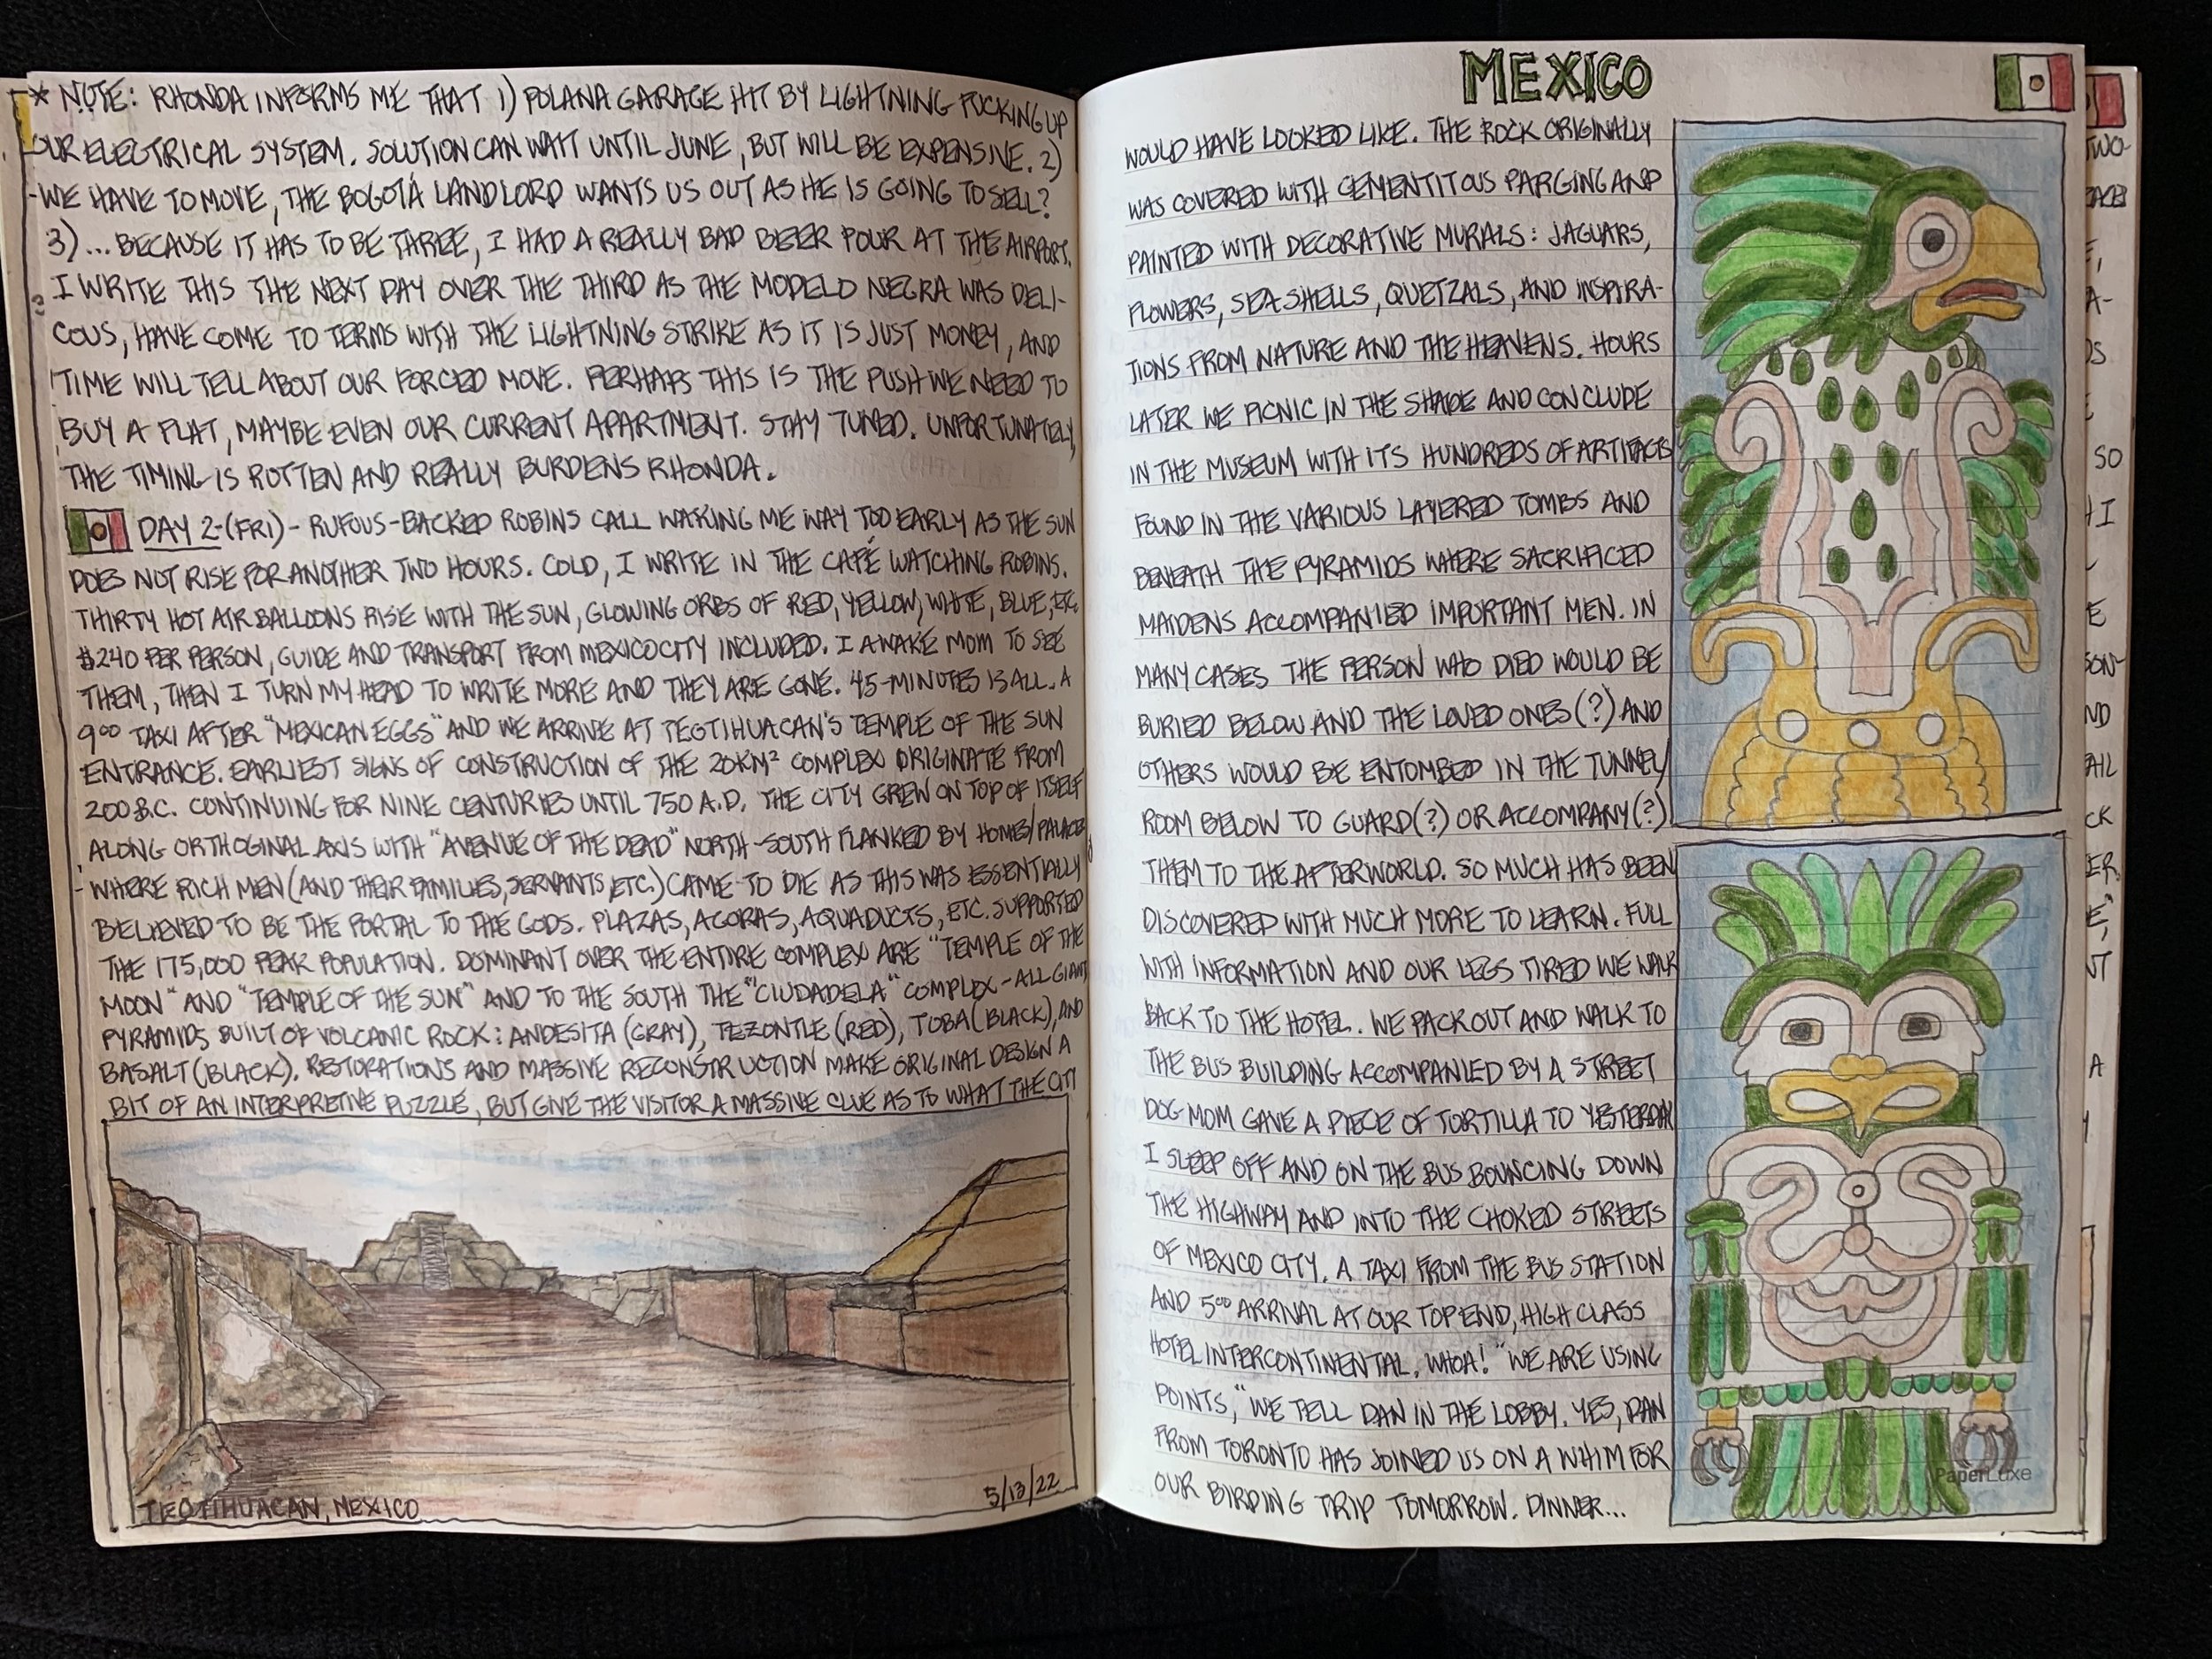 * NOTE: RHONDA INFORMS ME THAT 1) POLANA GARAGE HIT BY LIGHTNING FUCKING UP
OUR ELECTRICAL SYSTEM. SOLUTION CAN WAIT UNTIL JUNE, BUT WILL BE EXPENSIVE. 2)
WE HAVE TO MOVE, THE BOGOTÁ LANDLORD WANTS US OUT AS HE IS GOING TO SELL?
3)... BECAUSE IT HAS TO BE THREE, I HAD A REALLY BAD BEER POUR AT THE AIRPORT.
I WRITE THIS THE NEXT DAY OVER THE THIRD AS THE MODELO NEGRA WAS DELI-
COUS, HAVE COME TO TERMS WITH THE LIGHTNING STRIKE AS IT IS JUST MONEY, AND
TIME WILL TELL ABOUT OUR FORCED MOVE. PERHAPS THIS IS THE PUSH WE NEED TO
BUY A FLAT, MAYBE EVEN OUR CURRENT APARTMENT. STAY TUNED. UNFORTUNATELY,
THE TIMING IS ROTTEN AND REALLY BURDENS RHONDA.
DAY 2-(FRI)- RUFOUS-BACKED ROBINS CALL WAKING ME WAY TOO EARLY AS THE SUN
DOES NOT RISE FOR ANOTHER TWO HOURS. COLD, I WRITE IN THE CAFÉ WATCHING ROBINS.
THIRTY HOT AIR BALLOONS RISE WITH THE SUN, GLOWING ORBS OF RED, YELLOW, WHITE, BLUE, ETC.
$240 PER PERSON, GUIDE AND TRANSPORT FROM MEXICO CITY INCLUDED. I AWAKE MOM TO SEE
THEM, THEN I TURN MY HEAD TO WRITE MORE AND THEY ARE GONE. 45-MINUTES IS ALL. A
9⁰⁰ TAXI AFTER "MEXICAN EGGS" AND WE ARRIVE AT TEOTIHUACAN'S TEMPLE OF THE SUN
ENTRANCE. EARLIEST SIGNS OF CONSTRUCTION OF THE 20KM² COMPLEX ORIGINATE FROM
200 B.C. CONTINUING FOR NINE CENTURIES UNTIL 750 A.D. THE CITY GREW ON TOP OF ITSELF
ALONG ORTHOGINAL AXIS WITH "AVENUE OF THE DEAD" NORTH-SOUTH FLANKED BY HOMES/PALACES
WHERE RICH MEN (AND THEIR FAMILIES, SERVANTS, ETC.) CAME TO DIE AS THIS WAS ESSENTIALLY
BELIEVED TO BE THE PORTAL TO THE GODS. PLAZAS, AGORAS, AQUADUCTS, ETC. SUPPORTED
THE 175,000 PEAK POPULATION. DOMINANT OVER THE ENTIRE COMPLEX ARE "TEMPLE OF THE
MOON" AND "TEMPLE OF THE SUN" AND TO THE SOUTH THE "CIUDADELA" COMPLEX - ALL GIANT
PYRAMIDS BUILT OF VOLCANIC ROCK: ANDESITA (GRAY), TEZONTLE (RED), TOBA (BLACK), AND
BASALT (BLACK). RESTORATIONS AND MASSIVE RECONSTRUCTION MAKE ORIGINAL DESIGN A
BIT OF AN INTERPRETIVE PUZZLE, BUT GIVE THE VISITOR A MASSIVE CLUE AS TO WHAT THE CITY
TEOTIHUACAN, MEXICO
5/13/22
MEXICO
WOULD HAVE LOOKED LIKE. THE ROCK ORIGINALLY
WAS COVERED WITH CEMENTITOUS PARGING AND
PAINTED WITH DECORATIVE MURALS: JAGUARS,
FLOWERS, SEASHELLS, QUETZALS, AND INSPIRA-
TIONS FROM NATURE AND THE HEAVENS. HOURS
LATER WE PICNIC IN THE SHADE AND CONCLUDE
IN THE MUSEUM WITH ITS HUNDREDS OF ARTIFACTS
FOUND IN THE VARIOUS LAYERED TOMBS AND
BENEATH THE PYRAMIDS WHERE SACRIFICED
MAIDENS ACCOMPANIED IMPORTANT MEN. IN
MANY CASES THE PERSON WHO DIED WOULD BE
BURIED BELOW AND THE LOVED ONES (?) AND
OTHERS WOULD BE ENTOMBED IN THE TUNNEL/
ROOM BELOW TO GUARD (?) OR ACCOMPANY (?)
THEM TO THE AFTERWORLD. SO MUCH HAS BEEN
DISCOVERED WITH MUCH MORE TO LEARN. FULL
WITH INFORMATION AND OUR LEGS TIRED WE WALK
BACK TO THE HOTEL. WE PACK OUT AND WALK TO
THE BUS BUILDING ACCOMPANIED BY A STREET
DOG MOM GAVE A PIECE OF TORTILLA TO YESTERDAY
I SLEEP OFF AND ON THE BUS BOUNCING DOWN
THE HIGHWAY AND INTO THE CHOKED STREETS
OF MEXICO CITY. A TAXI FROM THE BUS STATION
AND 5⁰⁰ ARRIVAL AT OUR TOP END, HIGH CLASS
HOTEL INTERCONTINENTAL. WHOA! "WE ARE USING
POINTS," WE TELL DAN IN THE LOBBY. YES, DAN
FROM TORONTO HAS JOINED US ON A WHIM FOR
OUR BIRDING TRIP TOMORROW. DINNER...
PaperLuxe
TWO-
SO
I
A